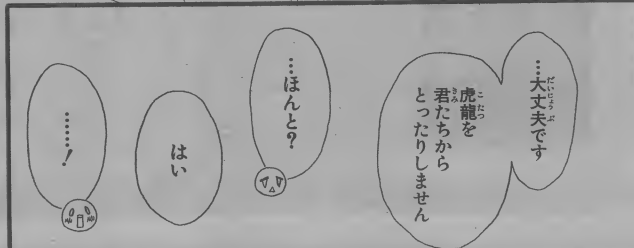 …大丈夫です
虎龍を
君たちから
とったりしません
…ほんと?
はい
………!